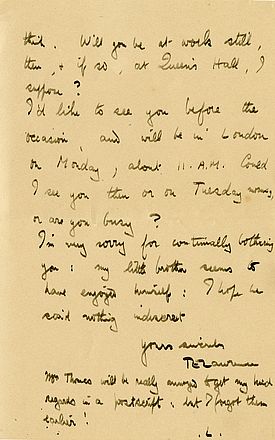 third. Will you be at work still,
then, & if so, at Queen's Hall, I
suppose?
I'd like to see you before the
occasion, and will be in London
on Monday, about 11. A.M. Could
I see you then or on Tuesday morning,
or are you busy?
I'm very sorry for continually bothering
you: my little brother seems to
have enjoyed himself: I hope he
said nothing indiscreet
Yours sincerely
TELawrence
Mrs Thomas will be really annoyed to get my kind
regards in a postscript, but I forgot them
earlier!
L.